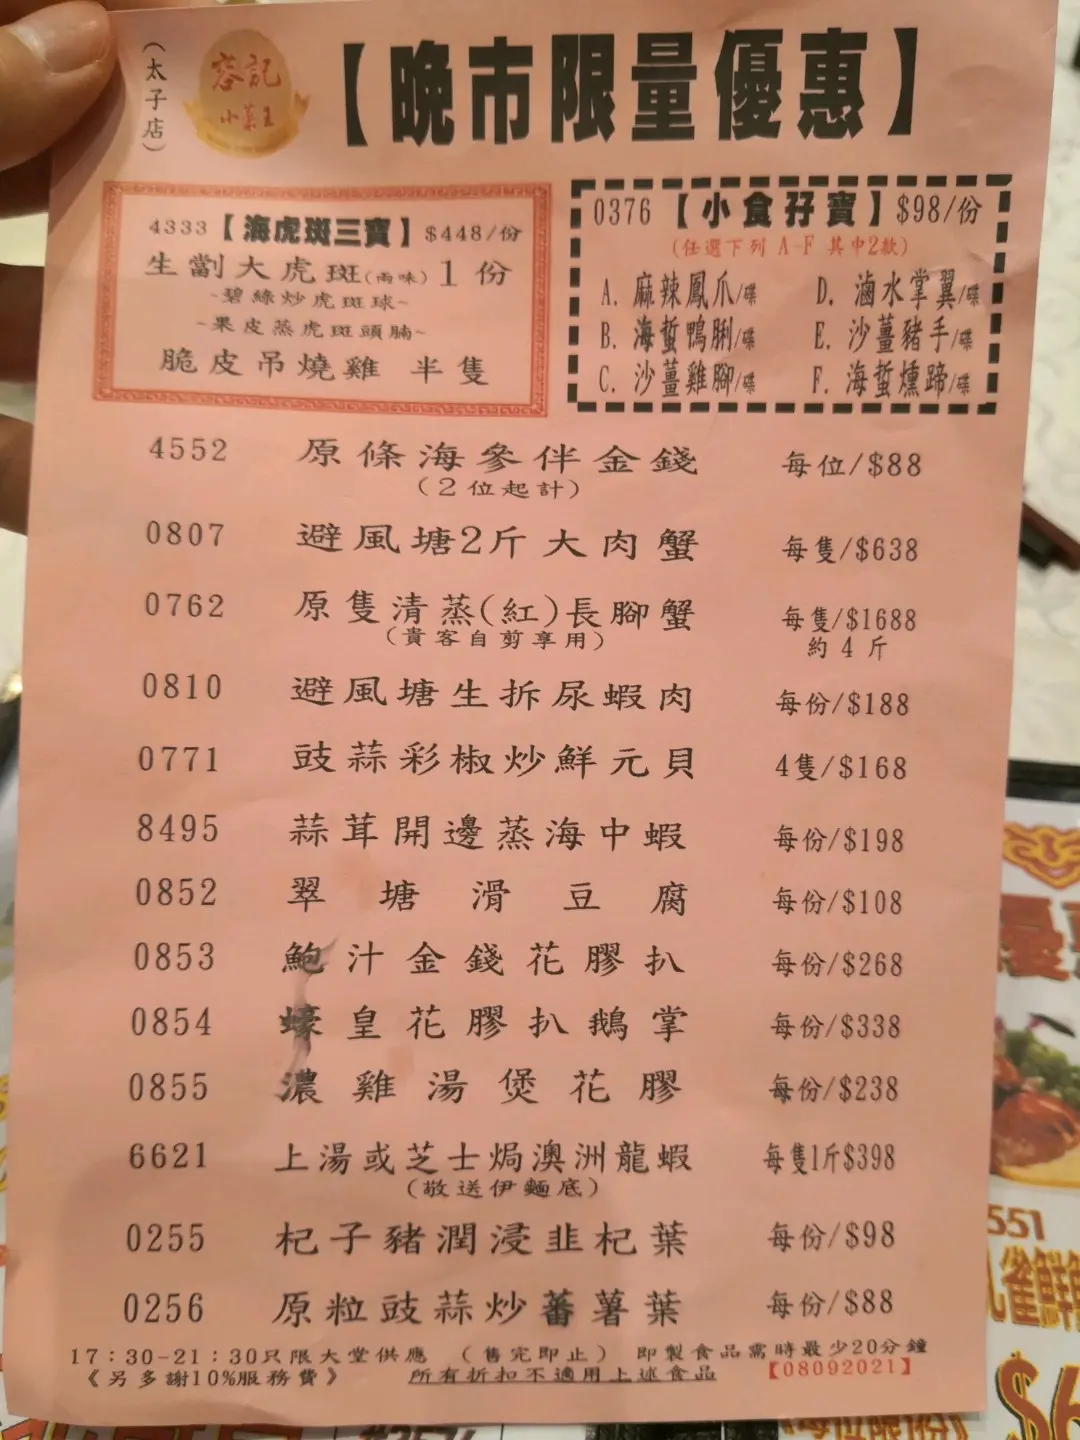 (太子店)
容記
小菜王
【晚市限量優惠】
4333【海虎斑三寶】$448/份
生劏大虎斑(兩味)1份
~碧綠炒虎斑球~
~果皮蒸虎斑頭腩~
脆皮吊燒雞 半隻
0376【小食孖寶】$98/份
(任選下列 A-F 其中2款)
A. 麻辣鳳爪/碟 D. 滷水掌翼/碟
B. 海蜇鴨脷/碟 E. 沙薑豬手/碟
C. 沙薑雞腳/碟 F. 海蜇燻蹄/碟
4552 原條海參伴金錢 每位/$88
(2位起計)
0807 避風塘2斤大肉蟹 每隻/$638
0762 原隻清蒸(紅)長腳蟹 每隻/$1688
(貴客自剪享用) 約 4 斤
0810 避風塘生拆尿蝦肉 每份/$188
0771 豉蒜彩椒炒鮮元貝 4隻/$168
8495 蒜茸開邊蒸海中蝦 每份/$198
0852 翠塘滑豆腐 每份/$108
0853 鮑汁金錢花膠扒 每份/$268
0854 蠔皇花膠扒鵝掌 每份/$338
0855 濃雞湯煲花膠 每份/$238
6621 上湯或芝士焗澳洲龍蝦 每隻1斤$398
(敬送伊麵底)
0255 杞子豬潤浸韭杞葉 每份/$98
0256 原粒豉蒜炒蕃薯葉 每份/$88
17:30-21:30只限大堂供應 (售完即止) 即製食品需時最少20分鐘
《另多謝10%服務費》 所有折扣不適用上述食品 【08092021】
551
雀鮮
$6